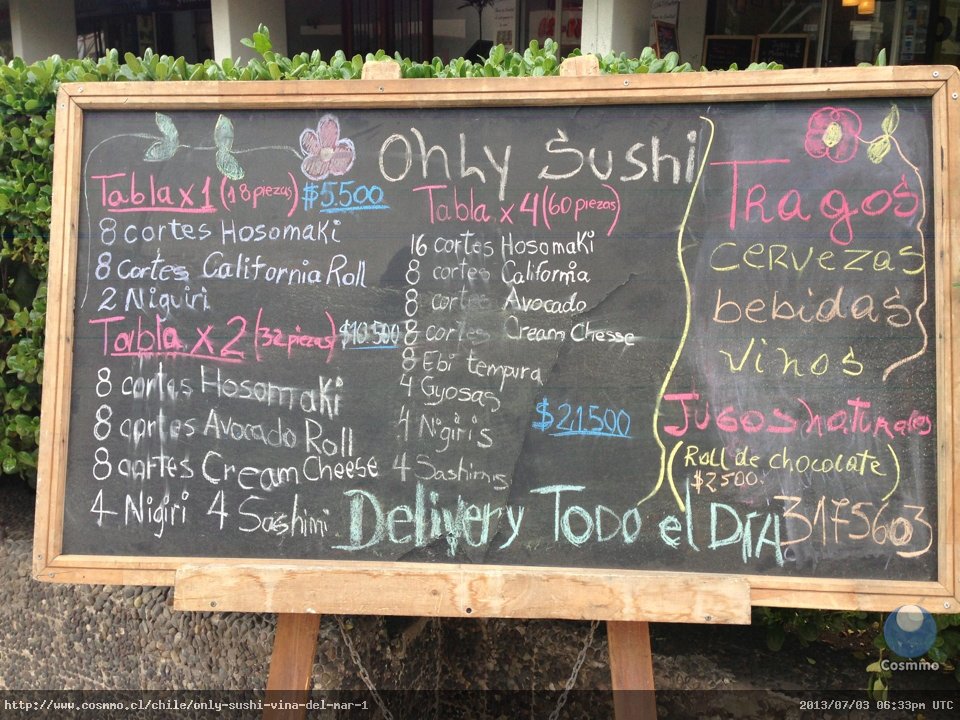 Only Sushi
Tabla x 1 (18 piezas) $5.500
8 cortes Hosomaki
8 Cortes California Roll
2 Niguiri
Tabla x 2 (32 piezas) $10.500
8 cortes Hosomaki
8 cortes Avocado Roll
8 cortes Cream Cheese
4 Nigiri 4 Sashimi
Tabla x 4 (60 piezas)
16 cortes Hosomaki
8 cortes California
8 cortes Avocado
8 cortes Cream Chesse
8 Ebi tempura
4 Gyosas
4 Nigiris
4 Sashimis
$21.500
Tragos
cervezas
bebidas
vinos
Jugos naturales
(Roll de chocolate)
$2.500.
Delivery Todo el Día 3175603
Cosmmo
http://www.cosmmo.cl/chile/only-sushi-vina-del-mar-1
2013/07/03 06:33pm UTC